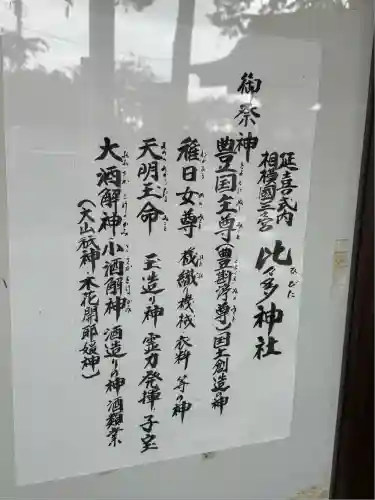 延喜式内
相模國三之宮
比々多神社
ひびた
御祭神
豊国主尊(豊斟渟尊)国土創造の神
稚日女尊 機織り機械 衣料 等の神
天明玉命 玉造り神 霊力発揮、子宝
大酒解神 小酒解神 酒造りの神 酒類業
(大山祇神 木花開耶媛神)